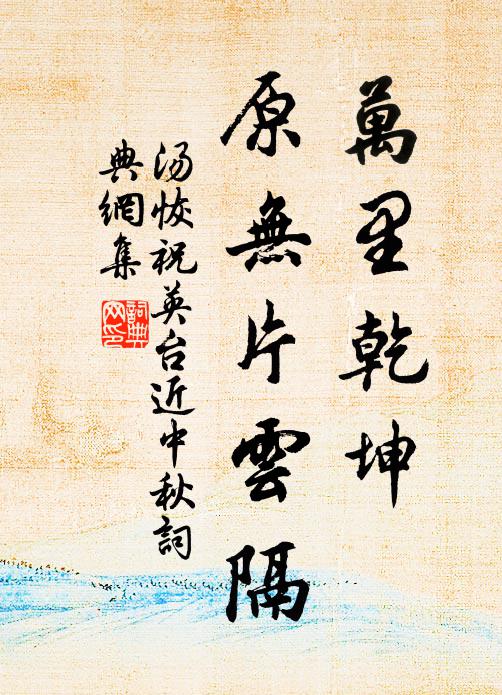 萬里乾坤
原無片雲隔
汤恢祝英台近中秋詞
典網集
詞典网印